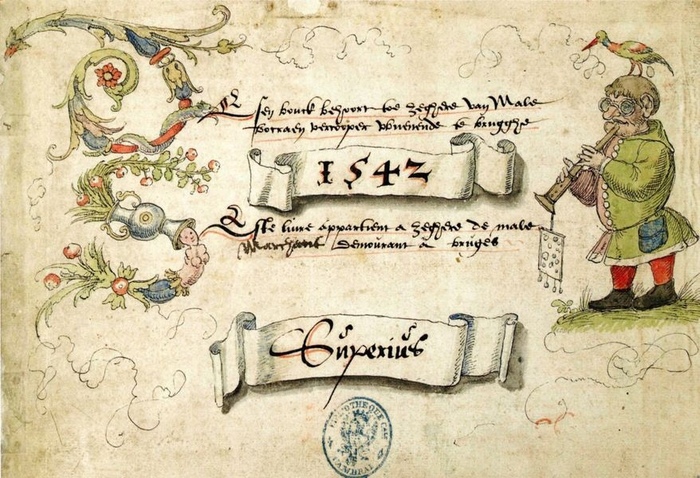 Desen bouck behoort toe zeghere van Male
vercooper wuenende te brugghe
1542
Ceste livre appartient a zeghere de male
Marchant demourant a bruges
Superius
BIBLIOTHEQUE
CAMBRAI